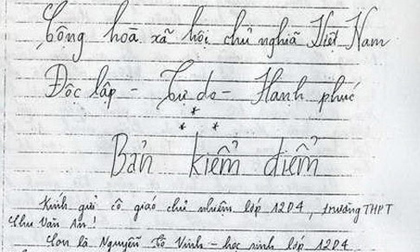 Công hoà xã hội chủ nghĩa Việt Nam
Độc lập - Tự do - Hạnh phúc
* * *
Bản kiểm điểm
Kính gửi cô giáo chủ nhiệm lớp 12D4, trường THPT
Chu Văn An!
Con là Nguyễn Tô Vinh - học sinh lớp 12D4